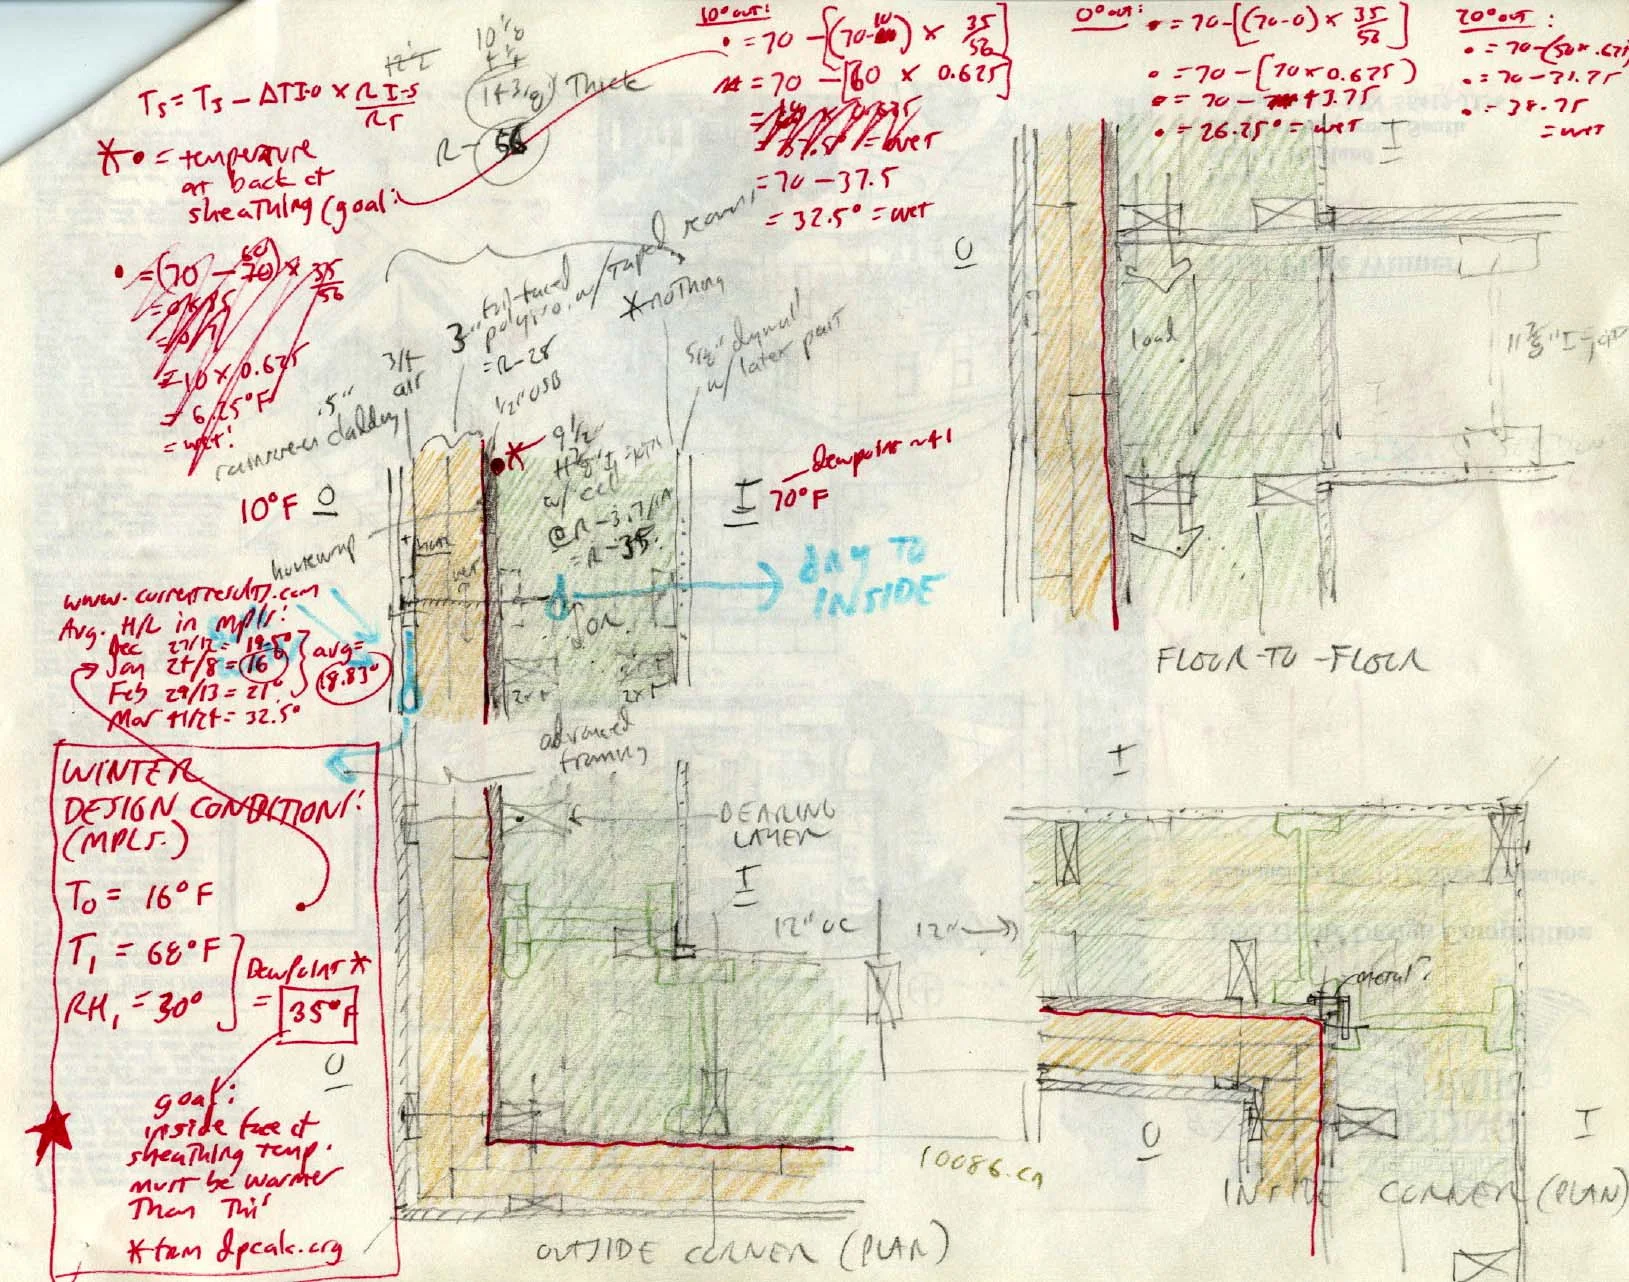 10° out:
• = 70 - [(70-10) × 35/56]
= 70 - [60 × 0.625]
= 37.5° = wet
= 70 - 37.5
= 32.5° = wet
0° out:
• = 70 - [(70-0) × 35/56]
• = 70 - [70 × 0.625)
• = 70 - 43.75
• = 26.25° = wet
20° out:
• = 70 - (50 × .625)
• = 70 - 31.25
• = 38.75
= wet
12 1/2
10 1/8
4 1/4
14 3/8 Thick
R-56
Ts = TI - ΔTI-O × RI-S/RT
* • = temperature
at back of
sheathing (goal:
• = (70 - 60) × 35/56
= 10 × 0.625
= 6.25°F
= wet!
.5"
rainscreen cladding
3/4
air
3" foil-faced
polyiso. w/ taped seams
= R-28
1/2" OSB
* nothing
5/8" drywall
w/ latex paint
9 1/2
w/ cell
@ R-3.7/in
= R-35.
10°F O
I 70°F
dewpoint ~41
housewrap
DRY TO
INSIDE
OR
2x4 2x4
advanced
framing
www.currentresults.com
Avg. H/L in mpls:
Dec 27/12 = 19.5°
Jan 24/8 = 16
Feb 29/13 = 21°
Mar 41/24 = 32.5°
avg =
18.83°
WINTER
DESIGN CONDITIONS:
(MPLS.)
To = 16°F
TI = 68°F
RHI = 30°
Dewpoint *
= 35°F
goal:
inside face of
sheathing temp.
must be warmer
than this
* from dpcalc.org
O
BEARING
LAYER
I
12" OC
12"
10086.cn
OUTSIDE CORNER (PLAN)
O
I
load
11 7/8" I-joist
FLOOR-TO-FLOOR
I
metal?
O
I
INSIDE CORNER (PLAN)